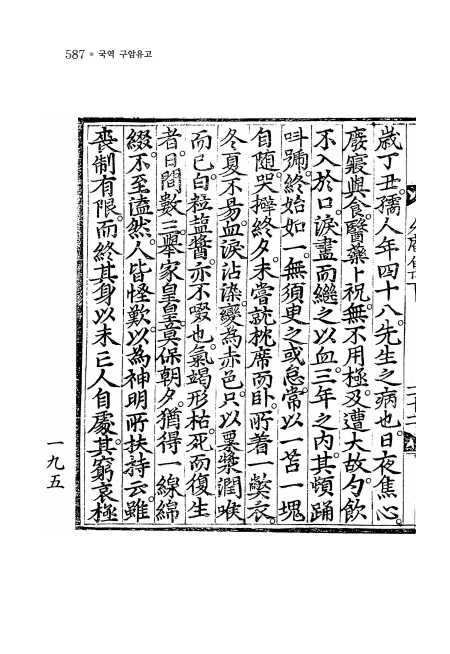 587 * 국역 구암유고
歲丁丑。孺人年四十八。先生之病也。日夜焦心。
廢寢與食。醫藥卜祝。無不用極。及遭大故。勺飮
不入於口。淚盡而繼之以血。三年之內。其頓踊
叫號。終始如一。無須臾之或怠。常以一苫一塊
自随。哭擗終夕。未嘗就枕席而卧。所着一獘衣。
冬夏不易。血淚沾染。變為赤色。只以菓漿潤喉
而已。白粒葅醬。亦不啜也。氣竭形枯。死而復生
者。日間數三。擧家皇皇。莫保朝夕。猶得一線綿
綴。不至溘然。人皆怪歎。以為神明所扶持云。雖
喪制有限。而終其身以未亡人自處。其窮哀極
一九五